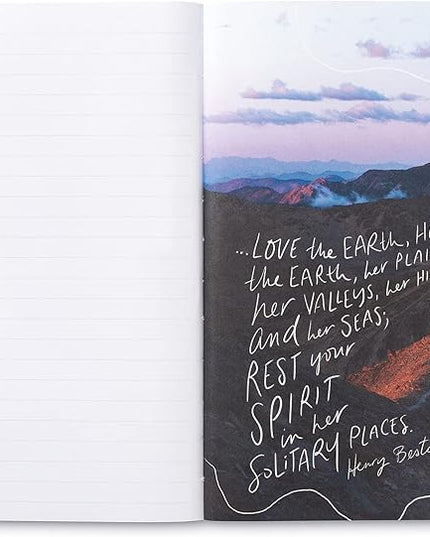 ...LOVE the EARTH,
the EARTH, her
her VALLEYS, her
and her SEAS;
REST your
SPIRIT
in her
SOLITARY PLACES.
Henry